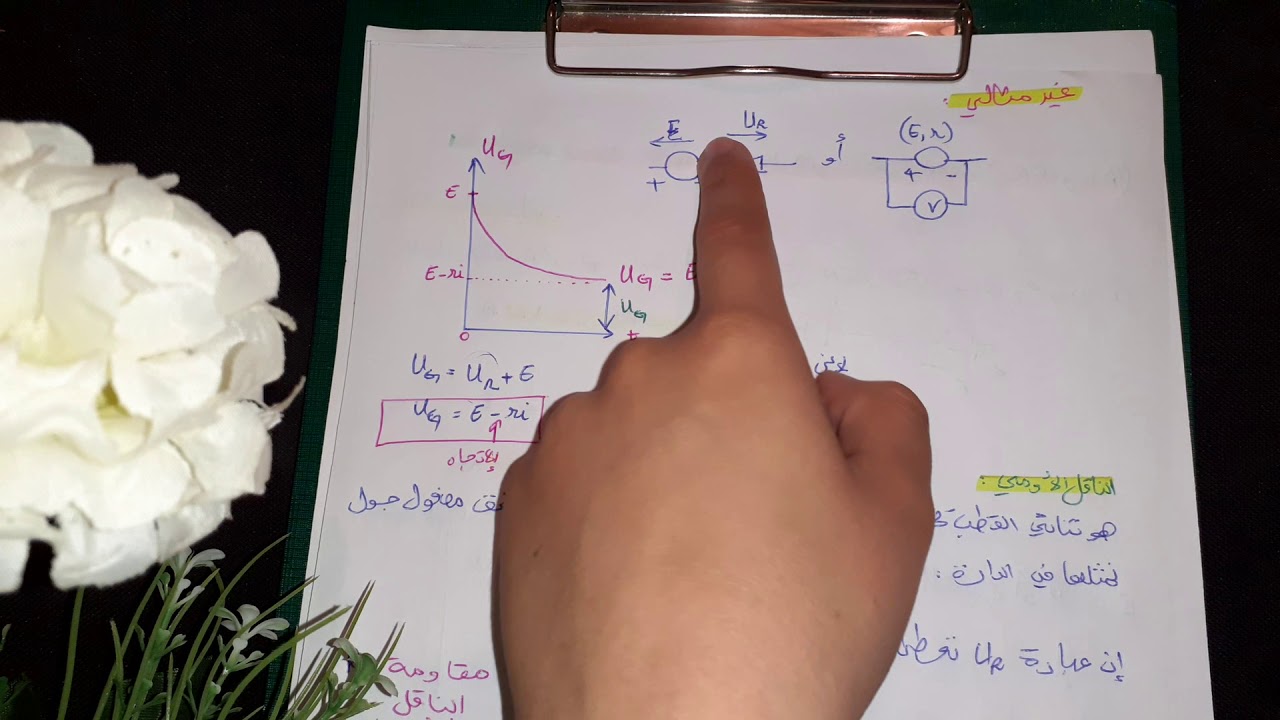 غير مثالي :
E
U_R
+
-
أو
(E, r)
+ -
V
U_G
E
E-ri
U_G = E
U_G
0
t
U_G = U_R + E
U_G = E - ri
الإتجاه
مفعول جول
الناقل الأومي :
هو ثنائي القطب
نمثلها في الدارة :
إن عبارة U_R تعطى
مقاومة
الناقل